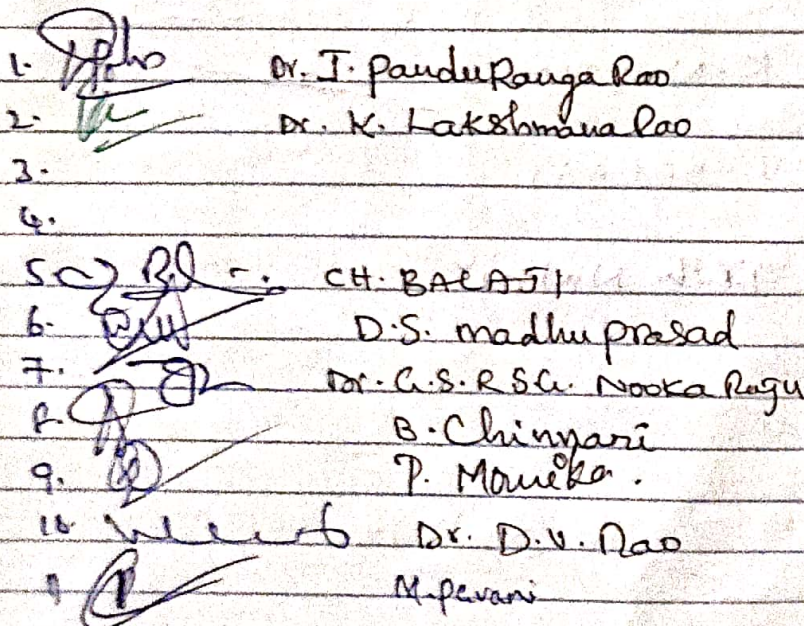 1. Dr. J. PanduRanga Rao
2. Dr. K. Lakshmana Rao
3.
4.
5 CH. BALAJI
6. D.S. madhu prasad
7. Dr. G.S.R.S.G. Nooka Raju
8. B. Chinnari
9. P. Mounika.
10 Dr. D.V. Rao
M. pavani